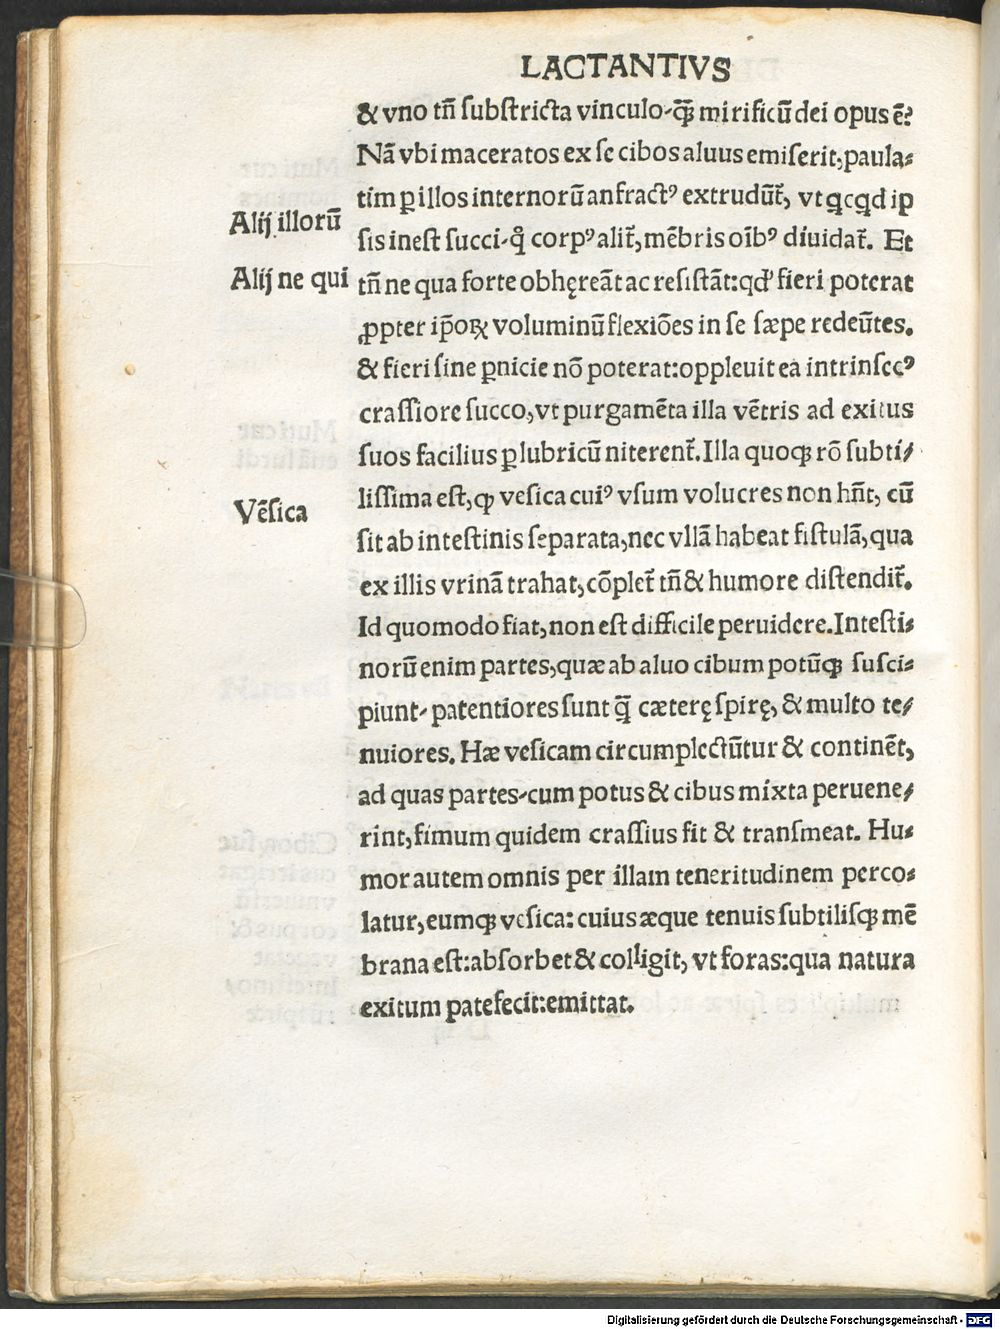 LACTANTIVS
& vno tñ ſubſtricta vinculo-q̃ꝫ mirificũ dei opus ẽ?
Nã vbi maceratos ex ſe cibos aluus emiſerit, paula-
tim ꝑ illos internorũ anfractꝰ extrudũt᷑, vt qͥcqͥd ip
Alij illorũ
ſis ineſt ſucci-qͦ corpꝰ alit᷑, mẽbris oĩbꝰ diuidat᷑. Et
Alij ne qui
tñ ne qua forte obhęreãt ac reſiſtãt: qd' fieri poterat
ꝓpter ip̃oꝝ voluminũ flexiões in ſe ſæpe redeũtes.
& fieri ſine ꝑnicie nõ poterat: oppleuit ea intrinſecꝰ
craſſiore ſucco, vt purgamẽta illa vẽtris ad exitus
ſuos facilius ꝑ lubricũ niterent᷑. Illa quoqꝫ rõ ſubti-
Vẽſica
liſſima eſt, ꝙ veſica cuiꝰ vſum volucres non hñt, cũ
ſit ab inteſtinis ſeparata, nec vllã habeat fiſtulã, qua
ex illis vrinã trahat, cõplet᷑ tñ & humore diſtendit᷑.
Id quomodo fiat, non eſt difficile peruidere. Inteſti-
norũ enim partes, quæ ab aluo cibum potũqꝫ ſuſci-
piunt- patentiores ſunt q̃ꝫ cæterę ſpirę, & multo te-
nuiores. Hæ veſicam circumplectũtur & continẽt,
ad quas partes-cum potus & cibus mixta peruene-
rint, fimum quidem craſſius fit & tranſmeat. Hu-
mor autem omnis per illam teneritudinem perco-
latur, eumqꝫ veſica: cuius æque tenuis ſubtiliſqꝫ mẽ
brana eſt: abſorbet & colligit, vt foras: qua natura
exitum patefecit: emittat.
Digitalisierung gefördert durch die Deutsche Forschungsgemeinschaft - DFG